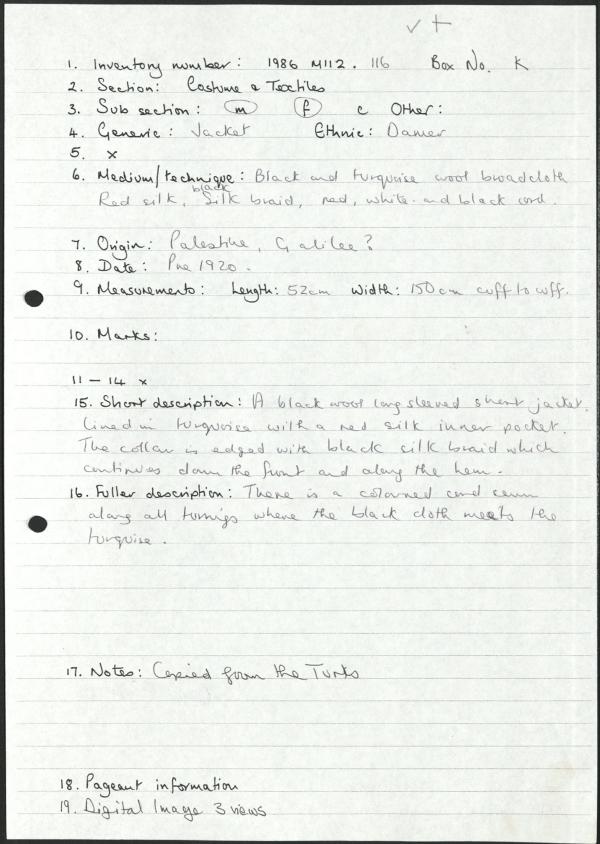 ✓ +
1. Inventory number: 1986 M112. 116 Box No. K
2. Section: Costume & Textiles
3. Sub section: m f c Other:
4. Generic: Jacket Ethnic: Damer
5. x
6. Medium/technique: Black and turquoise wool broadcloth
Red silk, black Silk braid, red, white and black cord.
7. Origin: Palestine, Galilee?
8. Date: Pre 1920.
9. Measurements: Length: 52cm Width: 150cm cuff to cuff.
10. Marks:
11 – 14 x
15. Short description: A black wool long sleeved short jacket.
Lined in turquoise with a red silk inner pocket.
The collar is edged with black silk braid which
continues down the front and along the hem.
16. Fuller description: There is a coloured cord
along all turnings where the black cloth meets the
turquoise.
17. Notes: Copied from the Turks
18. Pageant information
19. Digital Image 3 views